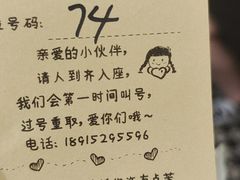 号码: 74
亲爱的小伙伴,
请人到齐入座,
我们会第一时间叫号,
过号重取,爱你们哦~
电话: 18915295596